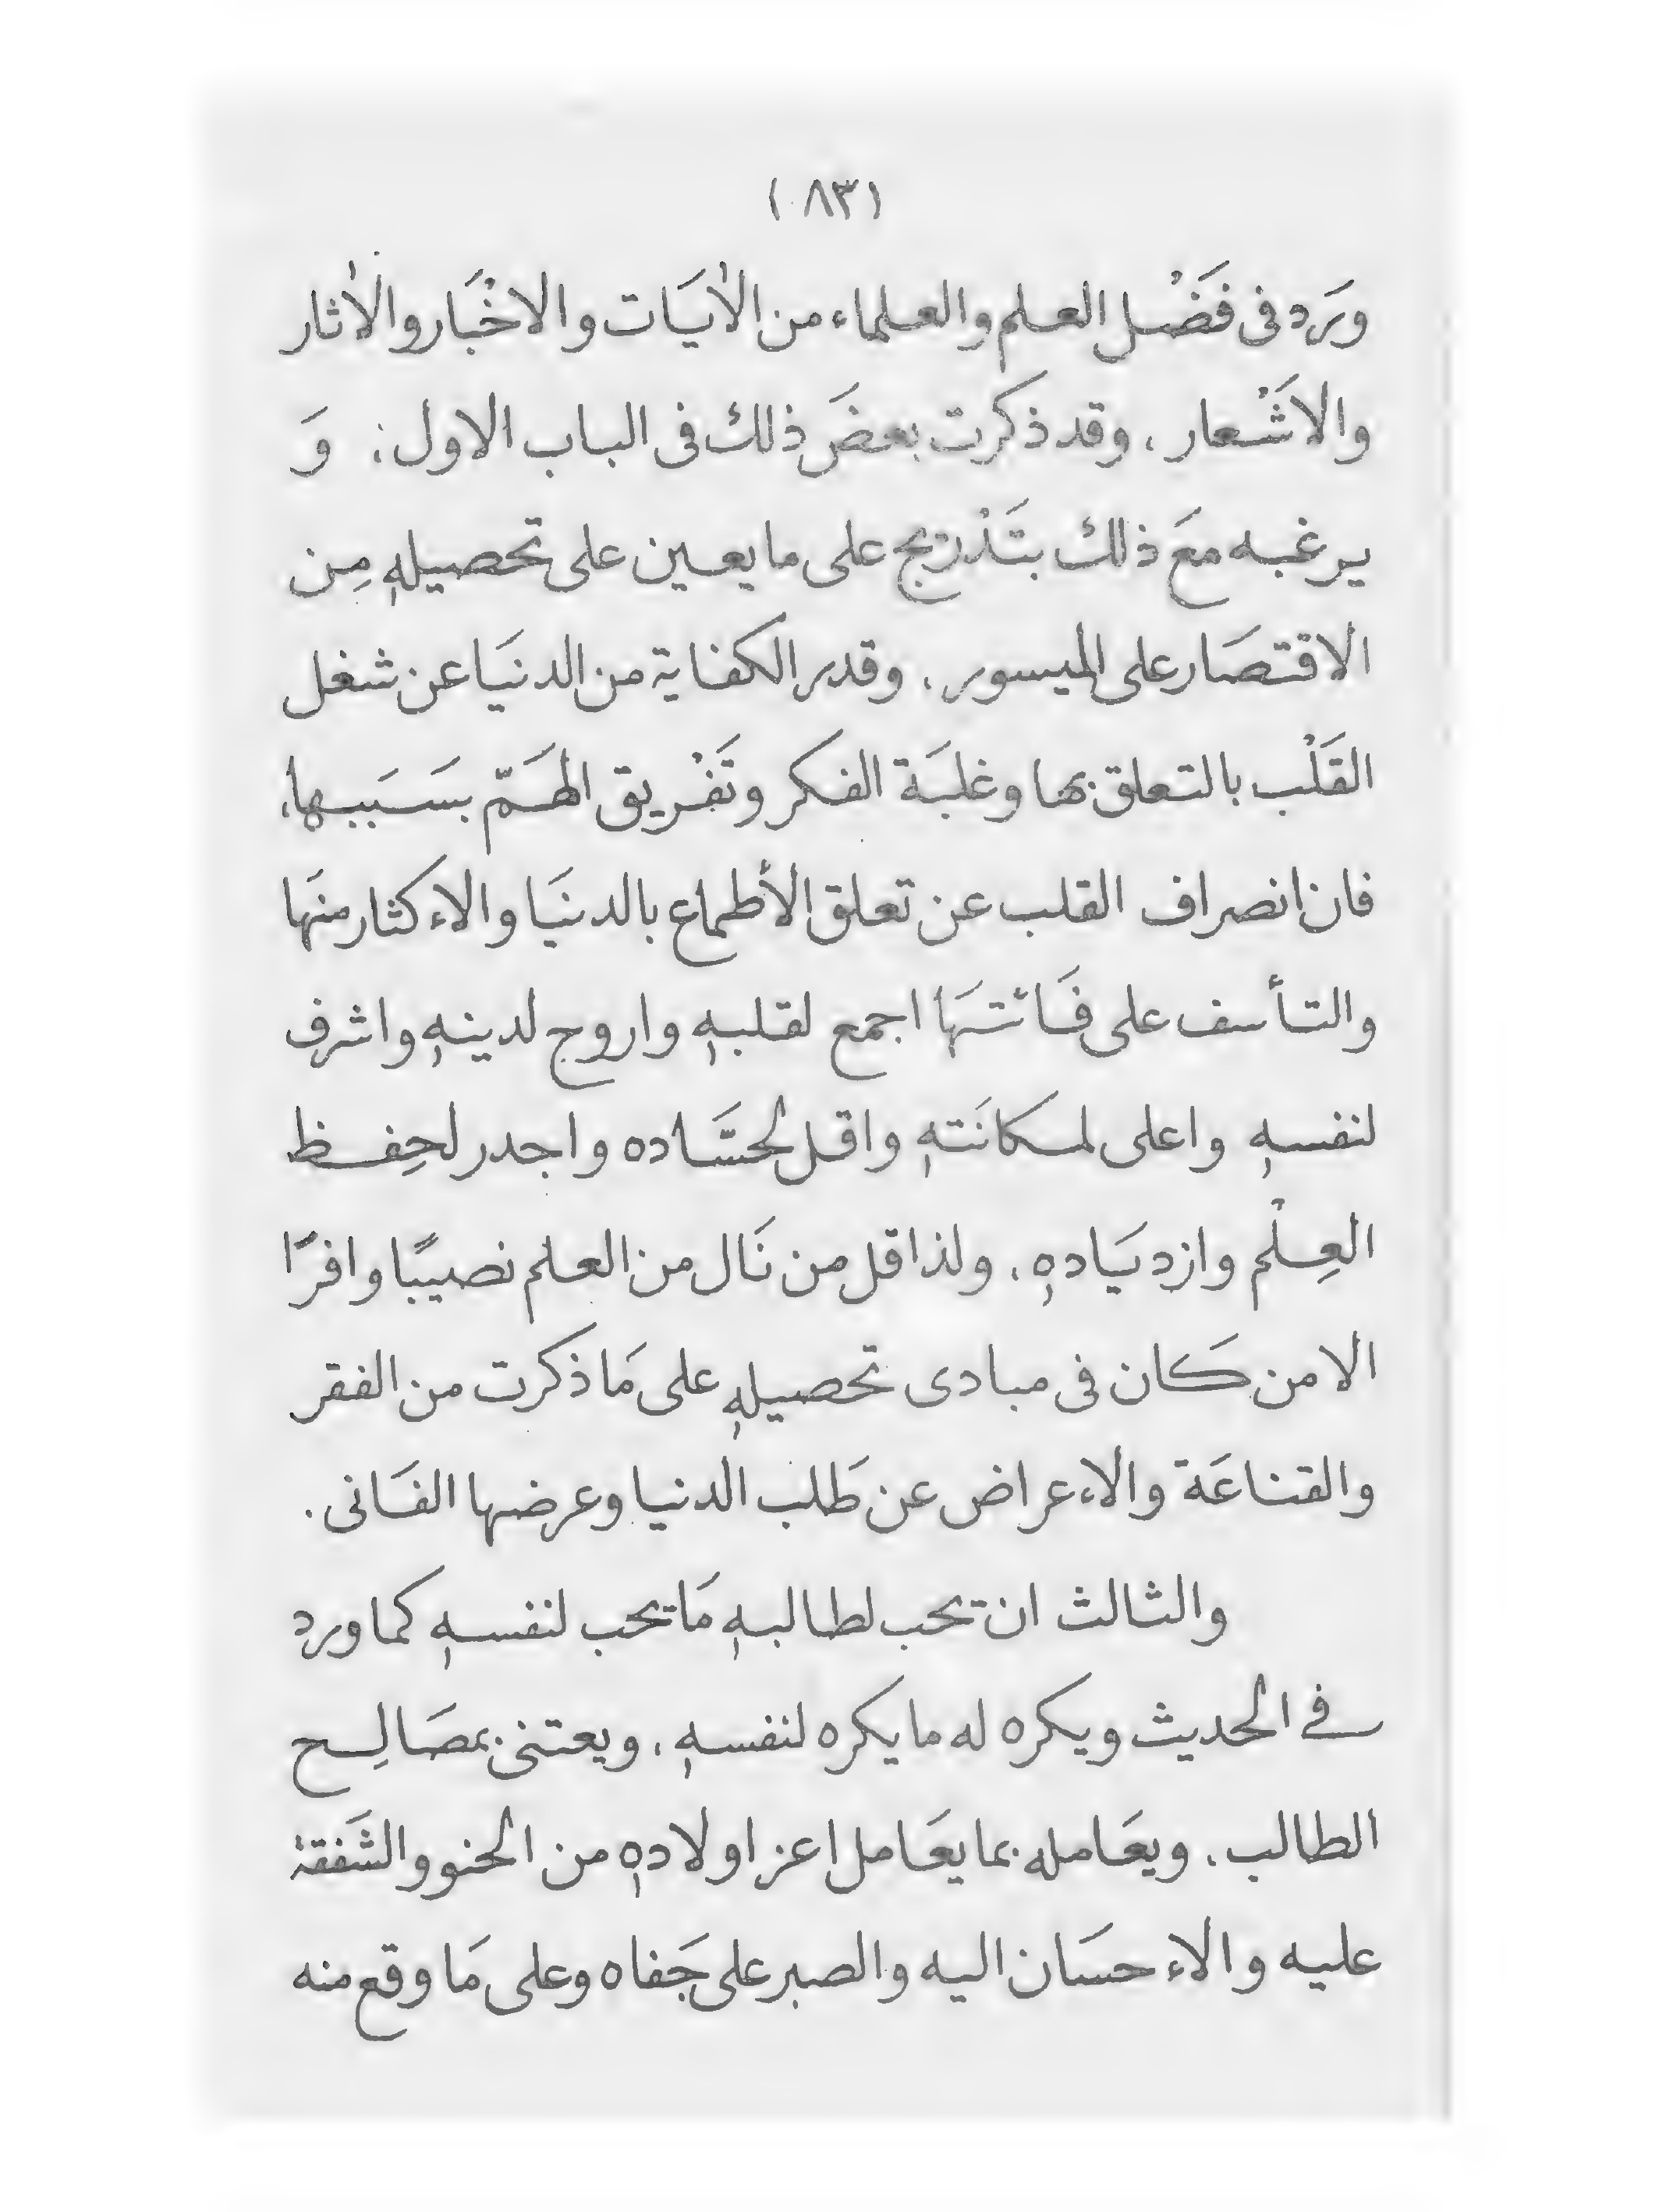 (٨٣)
وَرَد فى فَضْل العلم والعلماء من الاٰيَات والاخْبَار والاٰثار
والاَشْعار، وقد ذكرت بعضَ ذلك فى الباب الاول؛ وَ
يرغبه معَ ذلك بتَدْريج على ما يعين على تحصيلهٖ مِن
الاقتصَار على الميسور، وقدر الكفاية من الدنيَا عن شغل
القَلْب بالتعلق بها وغلبَة الفكر وتَفْريق الهَمّ بسَببها،
فان انصراف القلب عن تعلق الأطماع بالدنيَا والاءكثار منهَا
والتأسف على فَائتهَا اجمع لقلبهٖ واروج لدينهٖ واشرف
لنفسهٖ واعلى لمكانَتهٖ واقل لحسَّاده واجدر لحِفظ
العِلْم وازديَادهٖ، ولذا قل من نَال من العلم نصيبًا وافرًا
الا من كَان فى مبادى تحصيلهٖ على مَا ذكرت من الفقر
والقناعَة والاءعراض عن طَلب الدنيا وعرضها الفَانى.
والثالث ان تحب لطالبهٖ مَا تحب لنفسهٖ كما ورد
فے الحديث ويكره له ما يكره لنفسهٖ، ويعتنى بمصَالِح
الطالب، ويعَامله بما يعَامل اعز اولادهٖ من الحنو والشَفقة
عليه والاءحسَان اليه والصبر على جَفاه وعلى مَا وقع منه